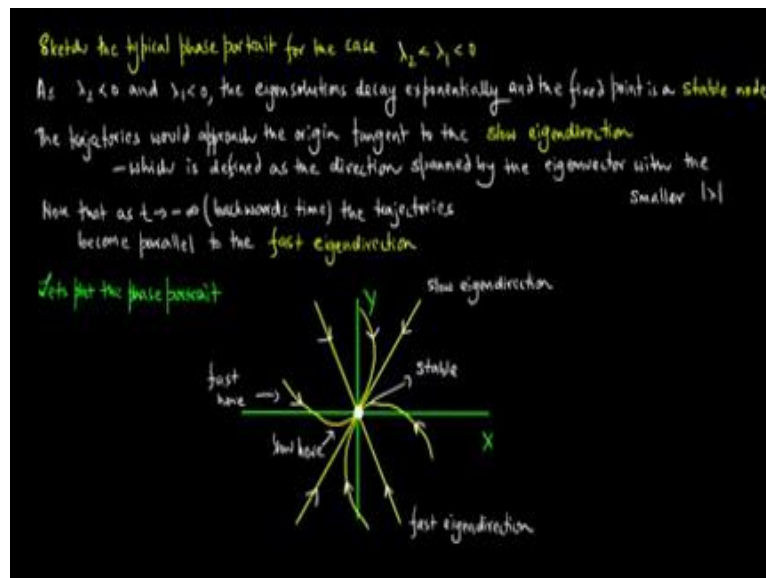 Sketch the typical phase portrait for the case λ₂ < λ₁ < 0
As λ₂<0 and λ₁<0, the eigensolutions decay exponentially and the fixed point is a stable node
The trajectories would approach the origin tangent to the slow eigendirection
- which is defined as the direction spanned by the eigenvector with the
smaller |λ|
Note that as t → -∞ (backwards time) the trajectories
become parallel to the fast eigendirection
Lets plot the phase portrait
slow eigendirection
Y
stable
fast
here
X
slow here
fast eigendirection